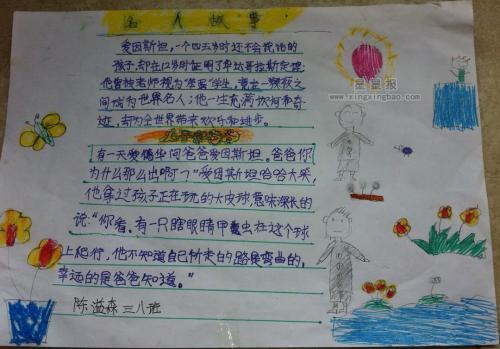 名人故事
星星报
www.xingxingbao.com
爱因斯坦,一个四五岁时还不会说话的
孩子,却在12岁时证明了毕达哥拉斯定理;
他曾被老师视为"笨蛋"学生,竟在一夜
之间成为世界名人;他一生充满坎坷和奇
迹,却为全世界带来欢乐和进步。
有一天爱德华问爸爸爱因斯坦,爸爸你
为什么那么出啊?"爱因斯坦哈哈大笑,
他拿过孩子正在玩的大皮球意味深长的
说:"你看,有一只瞎眼睛甲虫在这个球
上爬行,他不知道自己所走的路是弯曲的,
幸运的是爸爸知道。"
陈滋森 三八班